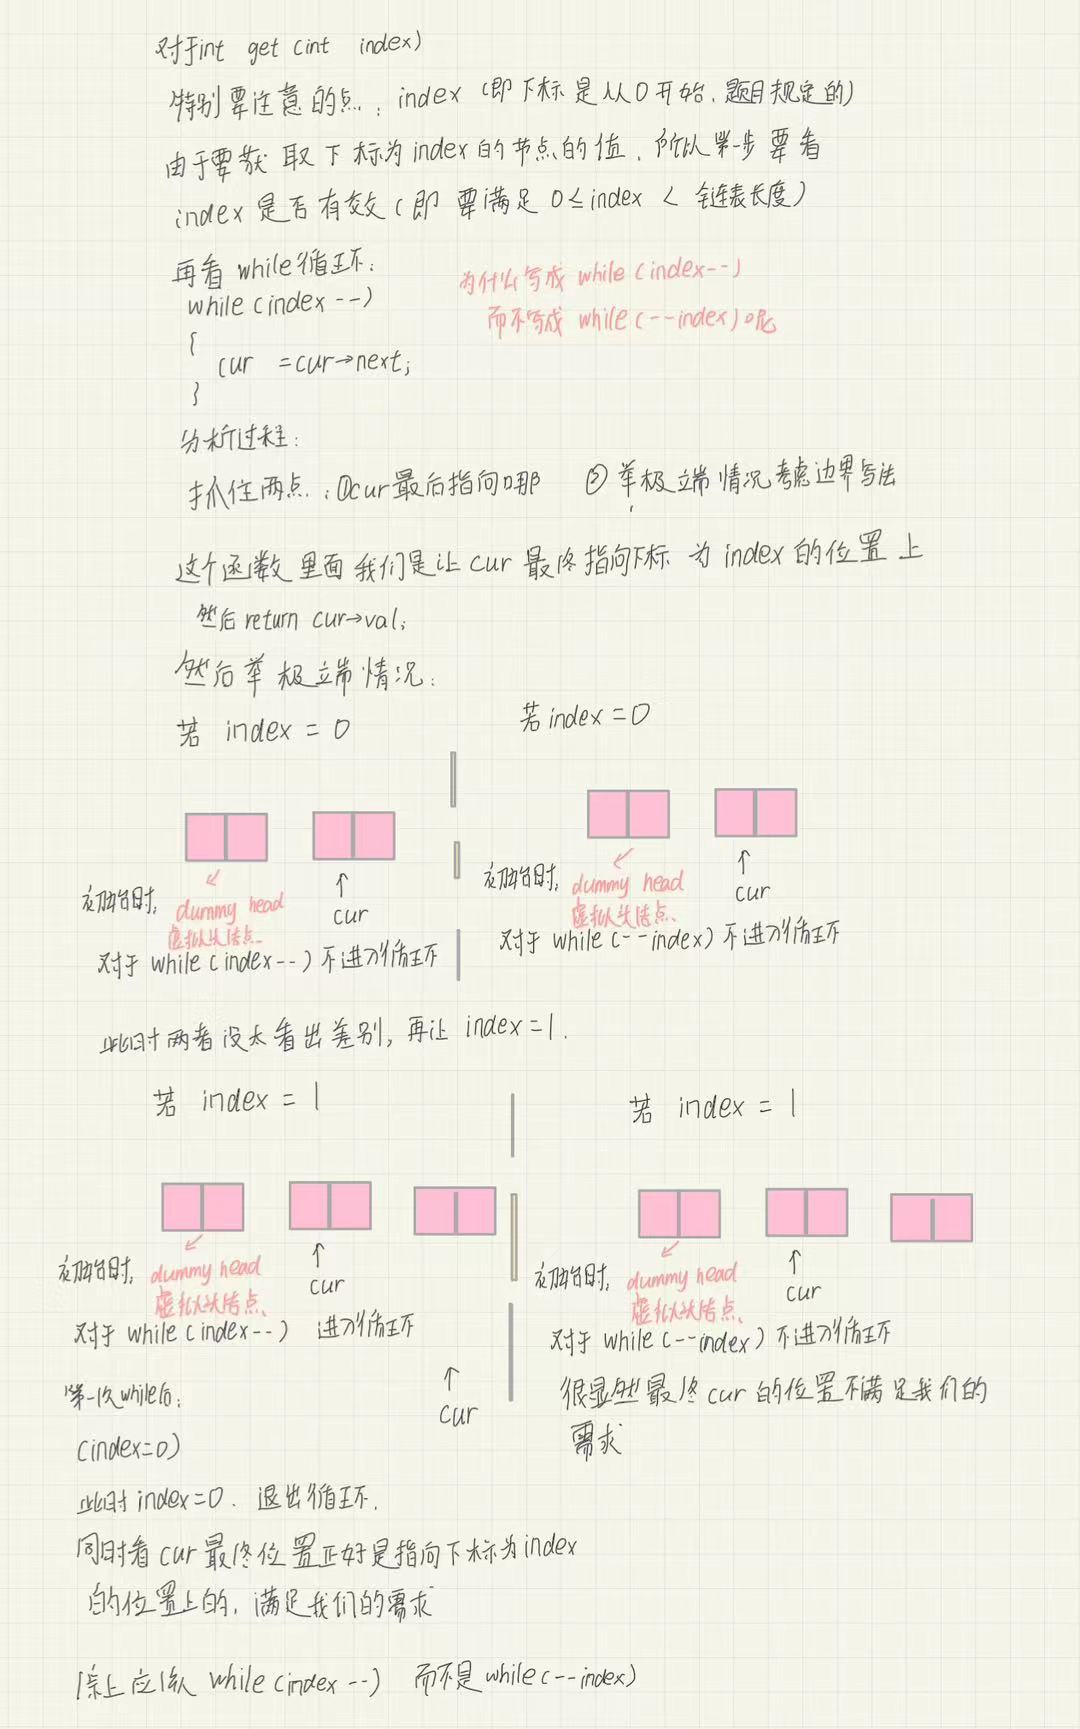 对于int get (int index)
特别要注意的点：index（即下标是从0开始，题目规定的）
由于要获取下标为index的节点的值，所以第一步要看
index是否有效（即要满足 0≤index < 链表长度）
再看while循环：
while (index --)
{
cur =cur→next;
}
为什么写成 while (index--)
而不写成 while (--index) 呢
分析过程：
抓住两点：①cur最后指向哪 ②举极端情况考虑边界写法
这个函数里面我们是让cur最终指向下标为index的位置上
然后return cur→val;
然后举极端情况：
若 index = 0
初始时，
dummy head
虚拟头结点
cur
对于 while (index--) 不进入循环
若index=0
初始时，
dummy head
虚拟头结点
cur
对于 while (--index) 不进入循环
此时两者没太看出差别，再让 index=1.
若 index = 1
初始时，
dummy head
虚拟头结点
cur
对于 while (index--) 进入循环
第一次while后：
(index=0)
cur
此时index=0. 退出循环.
同时看cur最终位置正好是指向下标为index
的位置上的，满足我们的需求
若 index = 1
初始时，
dummy head
虚拟头结点
cur
对于 while (--index) 不进入循环
很显然最终cur的位置不满足我们的
需求
综上应该 while (index --) 而不是while (--index)